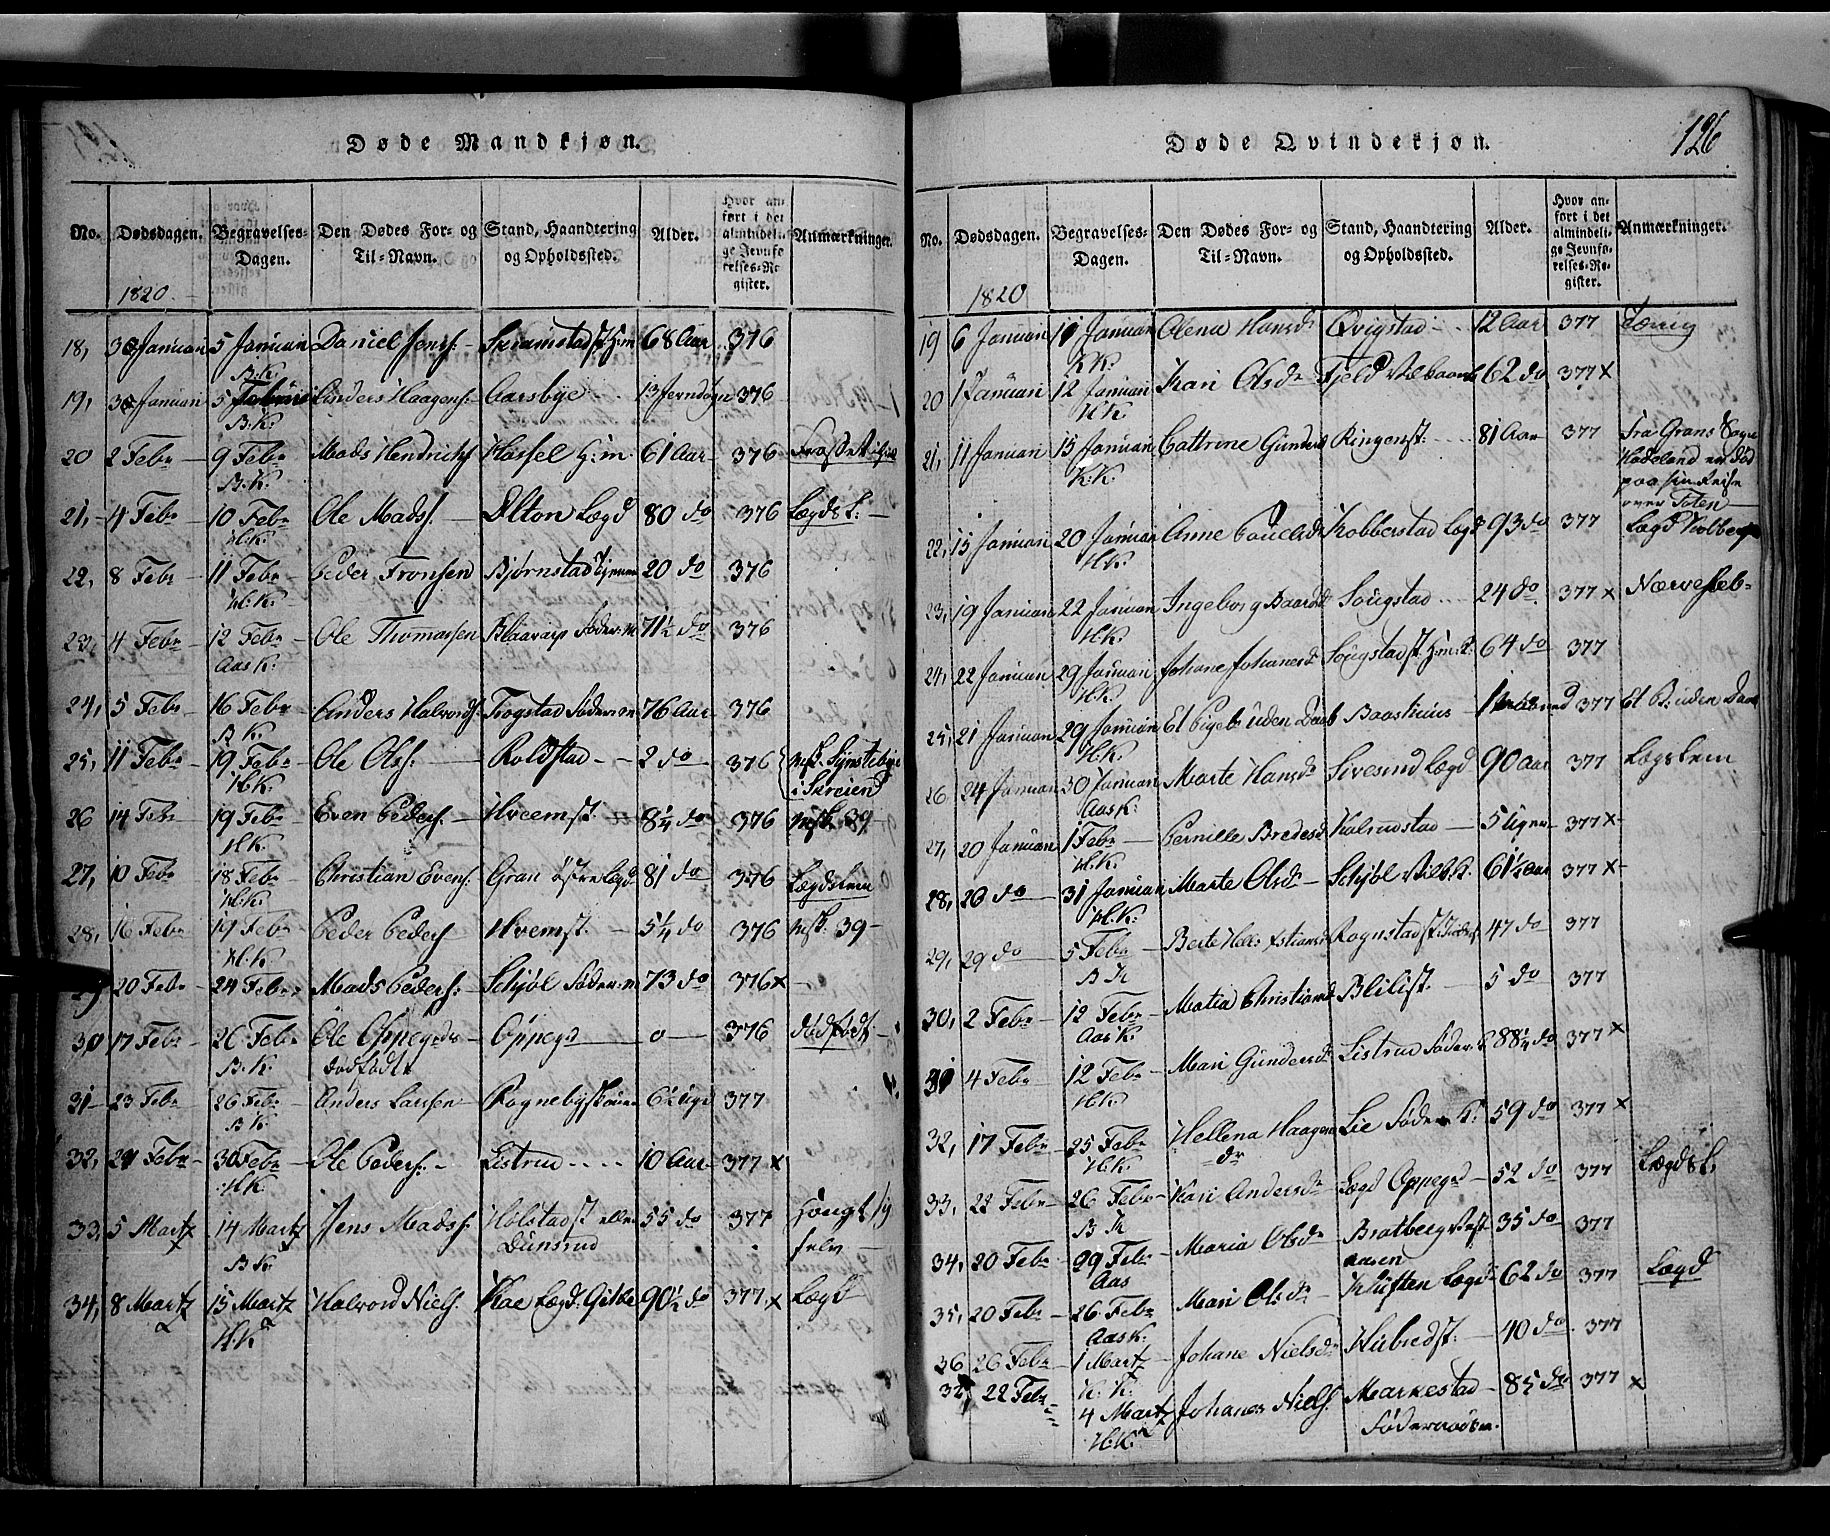 Døde Mandkjøn.
No. Dødsdagen. Begravelses-Dagen. Den Dødes For- og Til-Navn. Stand, Haandtering og Opholdssted. Alder. Hvor anført i det almindelige Jevnførelses-Register. Anmærkninger.
1820.
18, 30 Januari 5 Januari Daniel Jens: 68 Aar 376
B.K.
19, 30 Januari 5 Anders Haagens: Aarsbye 13 376
B.K.
20 2 Febr 9 Febr Mads Hendrichs Hassel H:m 61 Aar 376
B.K.
21, 4 Febr 10 Febr Ole Mads: Elton Lægd 80 do 376 Lægdsl:
H.K.
22, 8 Febr 11 Febr Peder Fronsen Bjørnstad 20 do 376
H.K.
23, 4 Febr 12 Febr Ole Thomassen Blaavarp Føder: m 71½ do 376
Aas K.
24, 5 Febr 16 Febr Anders Halvords: Føder: m 76 Aar 376
B K.
25, 11 Febr 19 Febr Ole Ols: Roldstad 2 do 376
H.K. i Skreien
26 14 Febr 19 Febr Even Peders: Hveemst: 8¼ do 376 39
H.K.
27, 10 Febr 18 Febr Christian Evens: Gran østre Lægd 81 do 376 Lægdslem
H.K.
28, 16 Febr 19 Febr Peder Peders Hvemst: 5¼ do 376 39
H.K.
29 20 Febr 24 Febr Mads Peders: Schjøl Føder: m 73 do 376 x
30 17 Febr 26 Febr Ole Oppegrds Oppegrd 0 376 dødfødt
B.K. dødfødt
31 23 Febr 26 Febr Anders Larsen 6½ 377
B K.
32, 24 Febr 30 Febr Ole Peders: Listrud 10 Aar 377 x
H.K.
33, 5 Martz 14 Martz Jens Mads: Holstadst eller 55 do 377
B K. Dunsrud selv
34, 8 Martz 15 Martz Halvord Niels: Kae Lægd: 90½ do 377 x Lægd
H.K.
Døde Qvindekjøn.
126
No. Dødsdagen. Begravelses-Dagen. Den Dødes For- og Til-Navn. Stand, Haandtering og Opholdssted. Alder. Hvor anført i det almindelige Jevnførelses-Register. Anmærkninger.
1820
19 6 Januari 11 Januari Olena Hansdr Qvigstad 12 Aar 377
K.K.
20 1 Januari 12 Januari Kari Olsdr Fjeld 62 do 377 x
H.K.
21, 11 Januari 15 Januari Cattrine Gunders Ringerst: 81 Aar 377 Fra Grans Sogn
K.K. Hadeland er død
paa sin Reise
over Toten
22, 15 Januari 20 Januari Anne Poulsdr Kobberstad Lægd 93 do 377 Lægd
H.K.
23, 19 Januari 22 Januari Ingeborg Baardsd Sougstad 24 do 377 x
H.K.
24, 22 Januari 29 Januari Johane Johanesd Sougstadst 64 do 377
H.K.
25, 21 Januari 29 Januari Et Pigeb uden Daab Baashuus 1 377 Et B: uden Daab
H.K.
26 24 Januari 30 Januari Marte Hansdr Sivesind Lægd 90 Aar 377 Lægslem
Aas K.
27, 20 Januari 1 Febr Pernille Bredesd Kolrudstad 5 Uger 377 x
H.K.
28, 20 do 31 Januari Marte Olsdr Schjøl 61½ Aar 377 x
H.K.
29, 29 do 5 Febr Berte Rognstadst 47 do 377
B K
30, 2 Febr 12 Febr Matia Christiansd Blilist. 5 do 377
Aas K.
31 4 Febr 12 Febr Mari Gundersdr Listrud Føder: 88¼ do 377 x
H.K.
32, 17 Febr 25 Febr Hellena Haagens Lie Føder 59 do 377 x
H.K. dr
33, 22 Febr 26 Febr Kari Andersdr Lægd Oppegrd 52 do 377 Lægdsl.
B K
34, 20 Febr 29 Febr Maria Olsdr Bratberg 35 do 377
Aas
35, 20 Febr 26 Febr Mari Olsdr Kluften Lægd: 62 do 377 Lægd
Aas K.
36 26 Febr 1 Martz Johane Nielsdr 40 do 377
K.K.
37, 22 Febr 4 Martz Johanes Niels: Markestad 85 do 377 x
H.K.